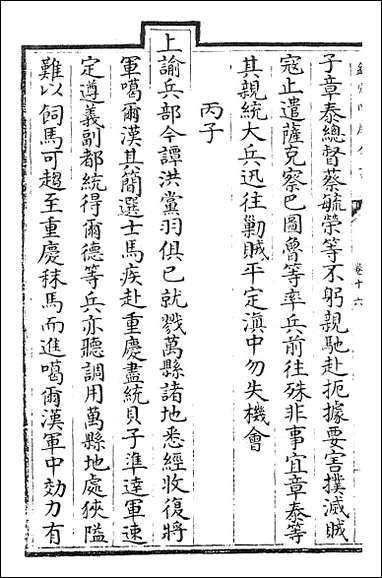 子章泰總督蔡毓榮等不躬親馳赴扼據要害撲滅賊
寇止遣薩克察巴圖魯等率兵前往殊非事宜章泰等
其親統大兵迅往勦賊平定滇中勿失機會
丙子
上諭兵部今譚洪黨羽俱已就戮萬縣諸地悉經收復將
軍噶爾漢其簡選士馬疾赴重慶盡統貝子準達軍速
定遵義副都統得爾德等兵亦聽調用萬縣地處狹隘
難以飼馬可趨至重慶秣馬而進噶爾漢軍中効力有
卷十六